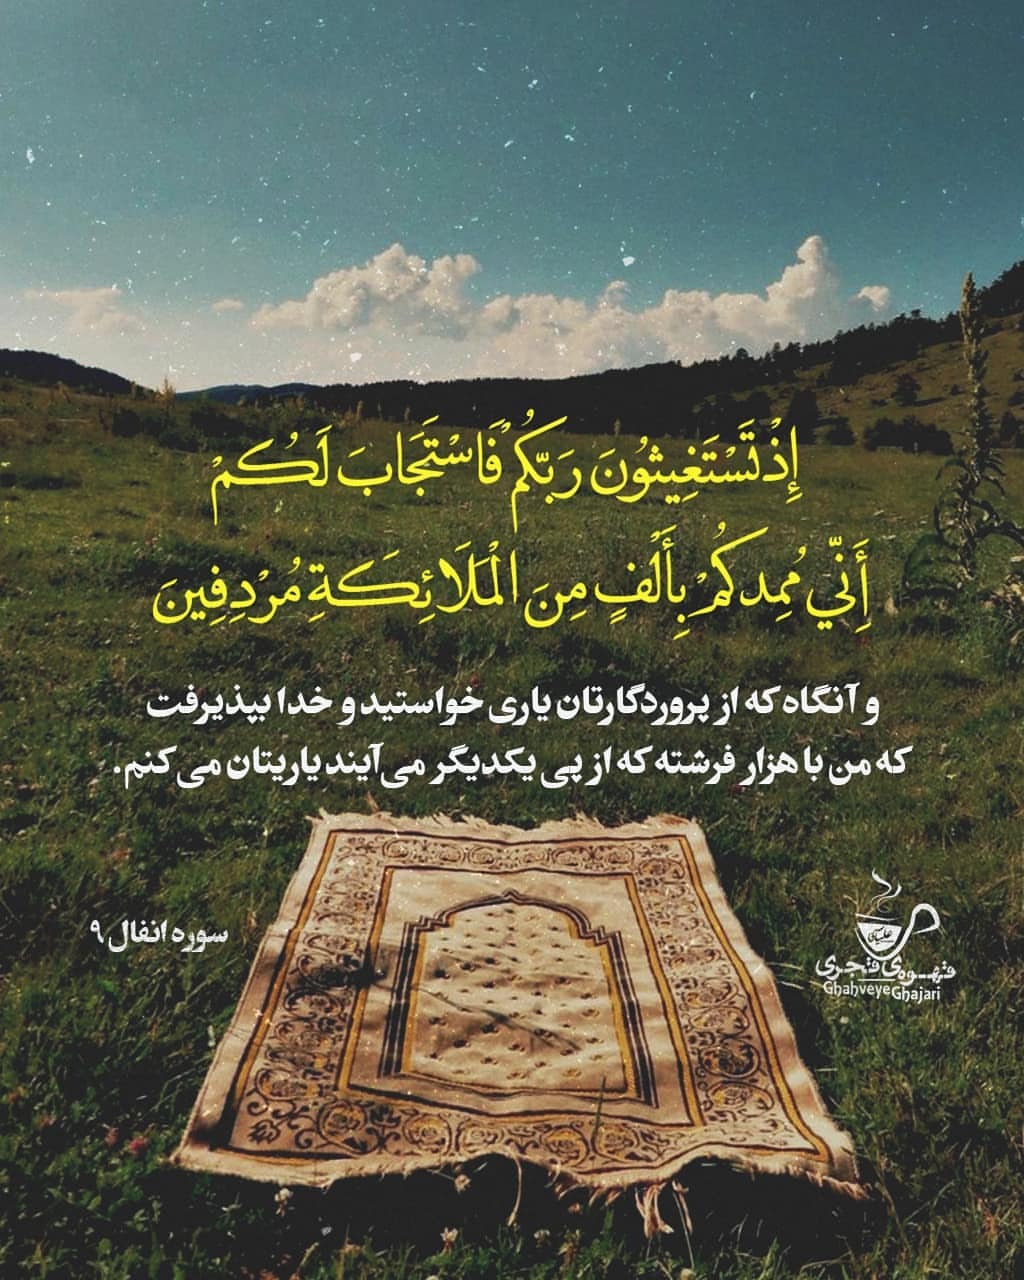 إِذْ تَسْتَغِيثُونَ رَبَّكُمْ فَاسْتَجَابَ لَكُمْ
أَنِّي مُمِدُّكُمْ بِأَلْفٍ مِنَ الْمَلَائِكَةِ مُرْدِفِينَ
و آنگاه که از پروردگارتان یاری خواستید و خدا بپذیرفت
که من با هزار فرشته که از پی یکدیگر می‌آیند یاریتان می‌کنم.
سوره انفال ۹
قهوه‌ی قجری
GhahveyeGhajari